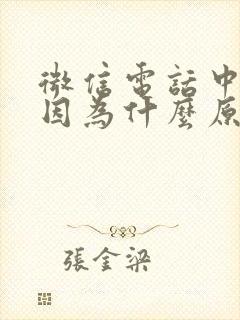 微信電話中
因為什麼原
張金梁